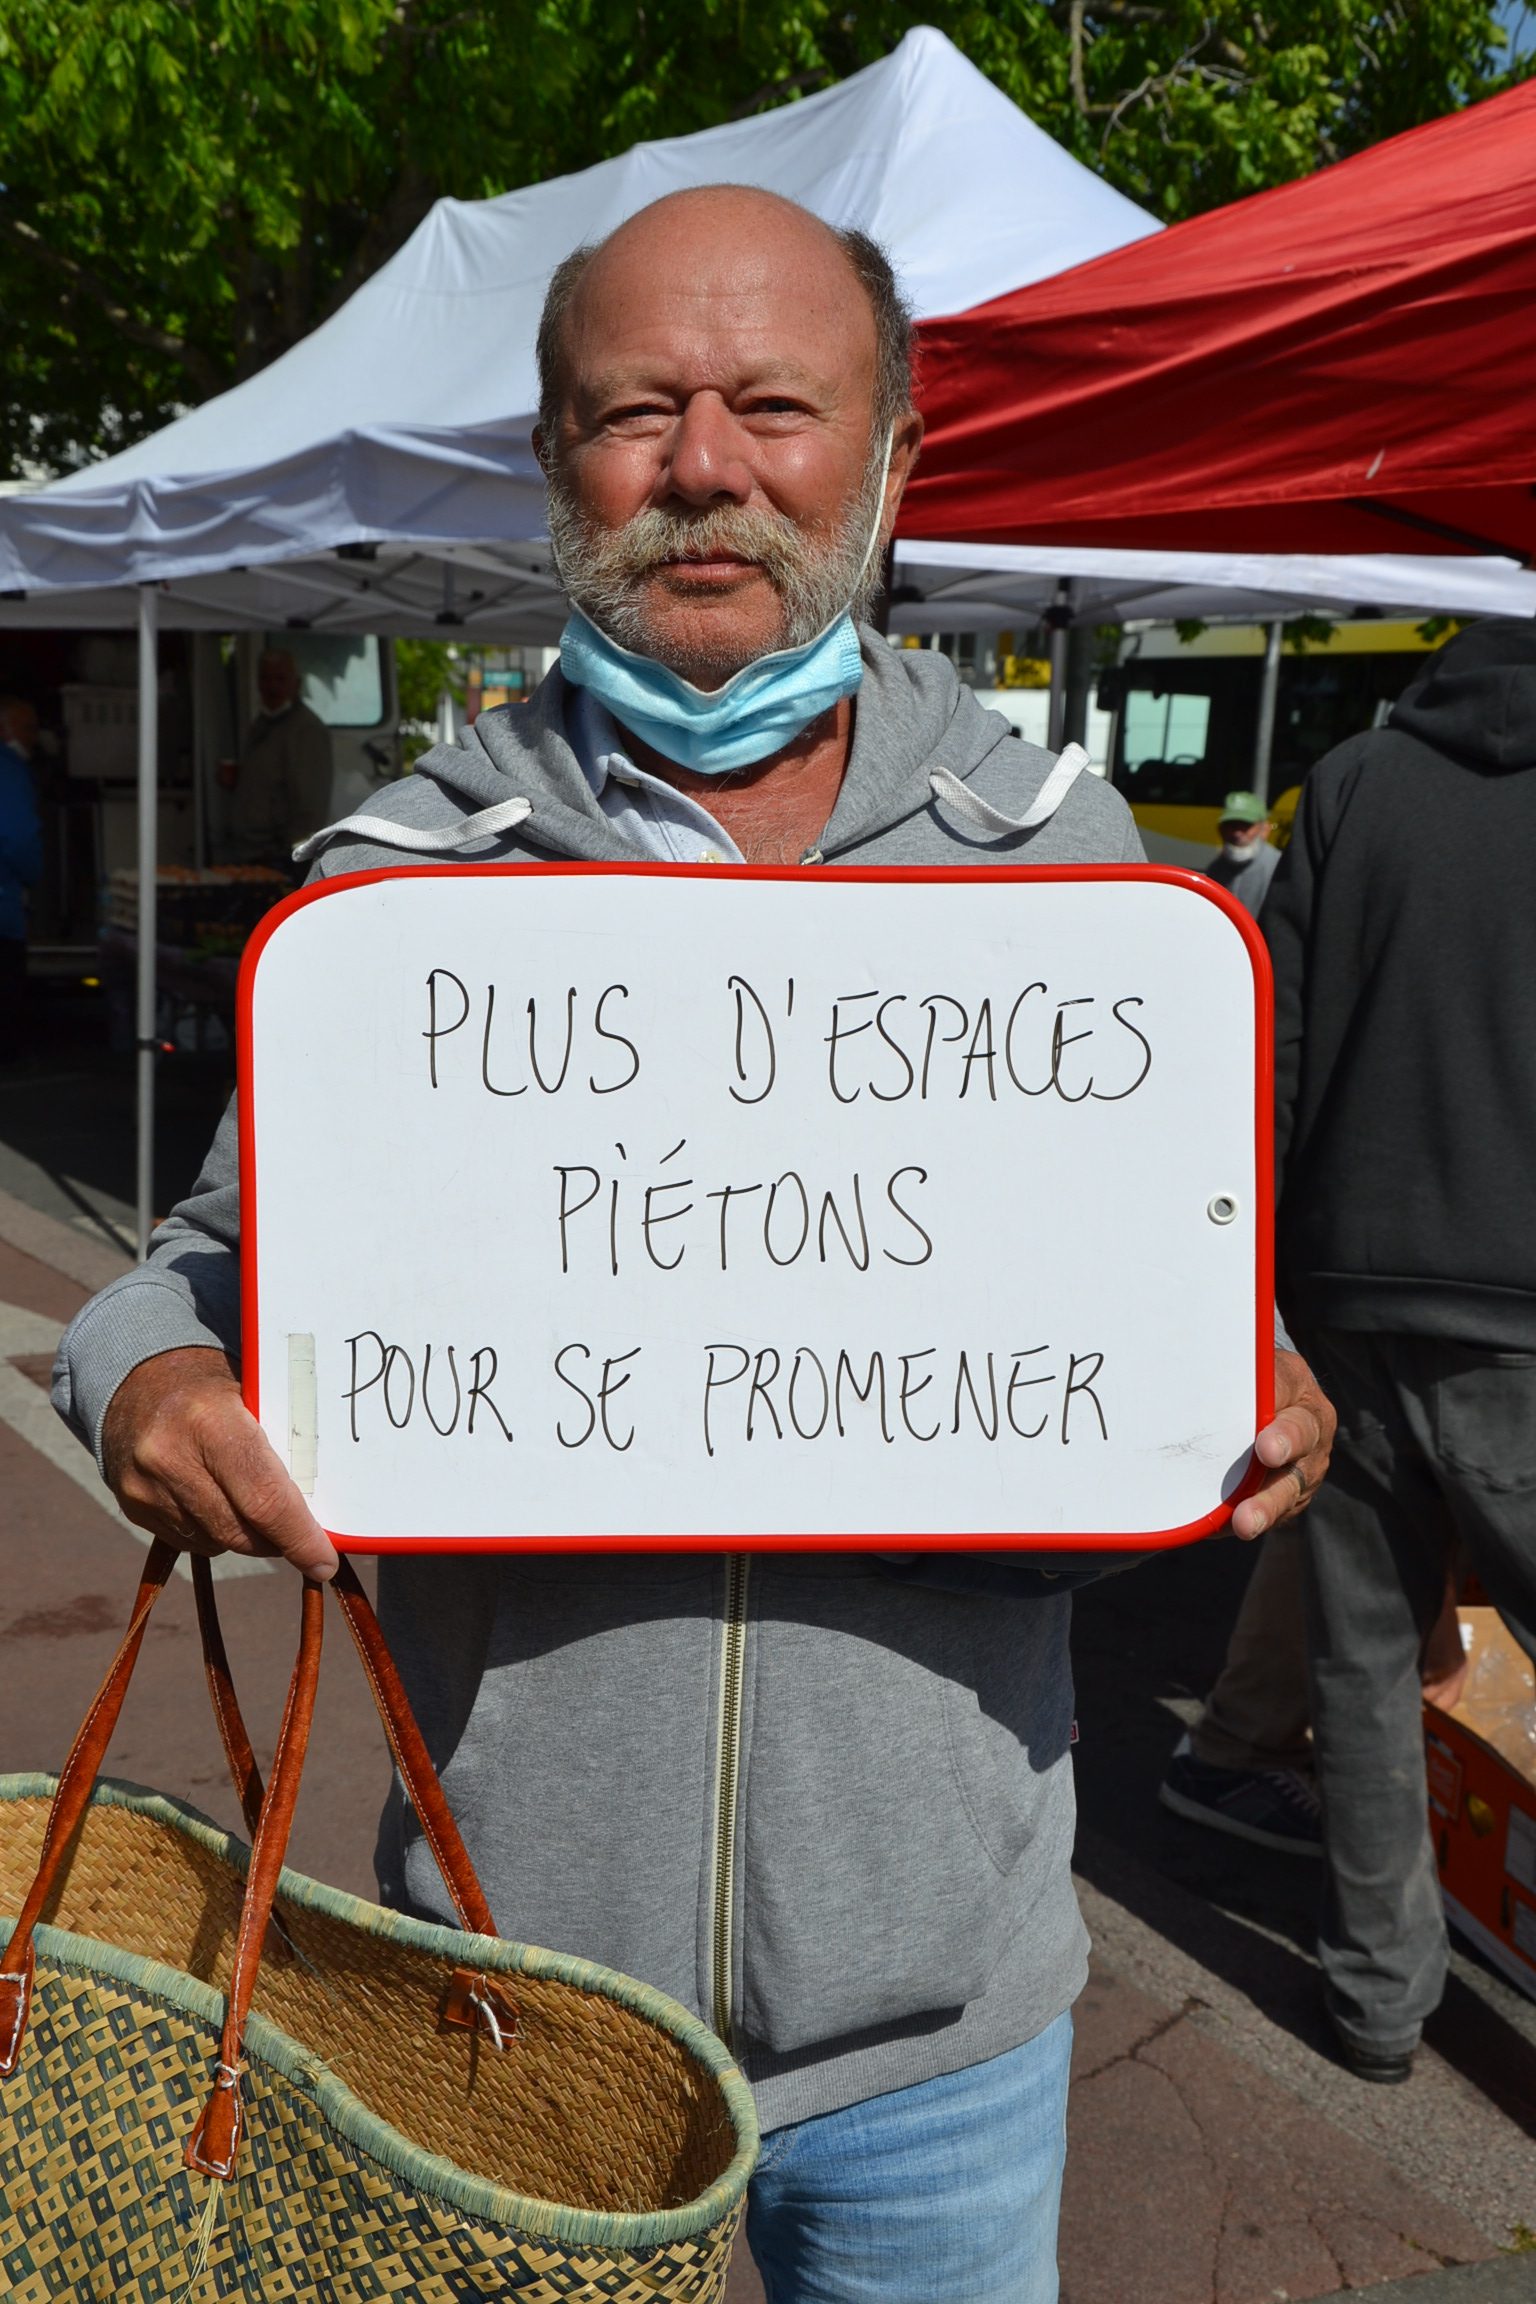 PLUS D'ESPACES
PIÉTONS
POUR SE PROMENER